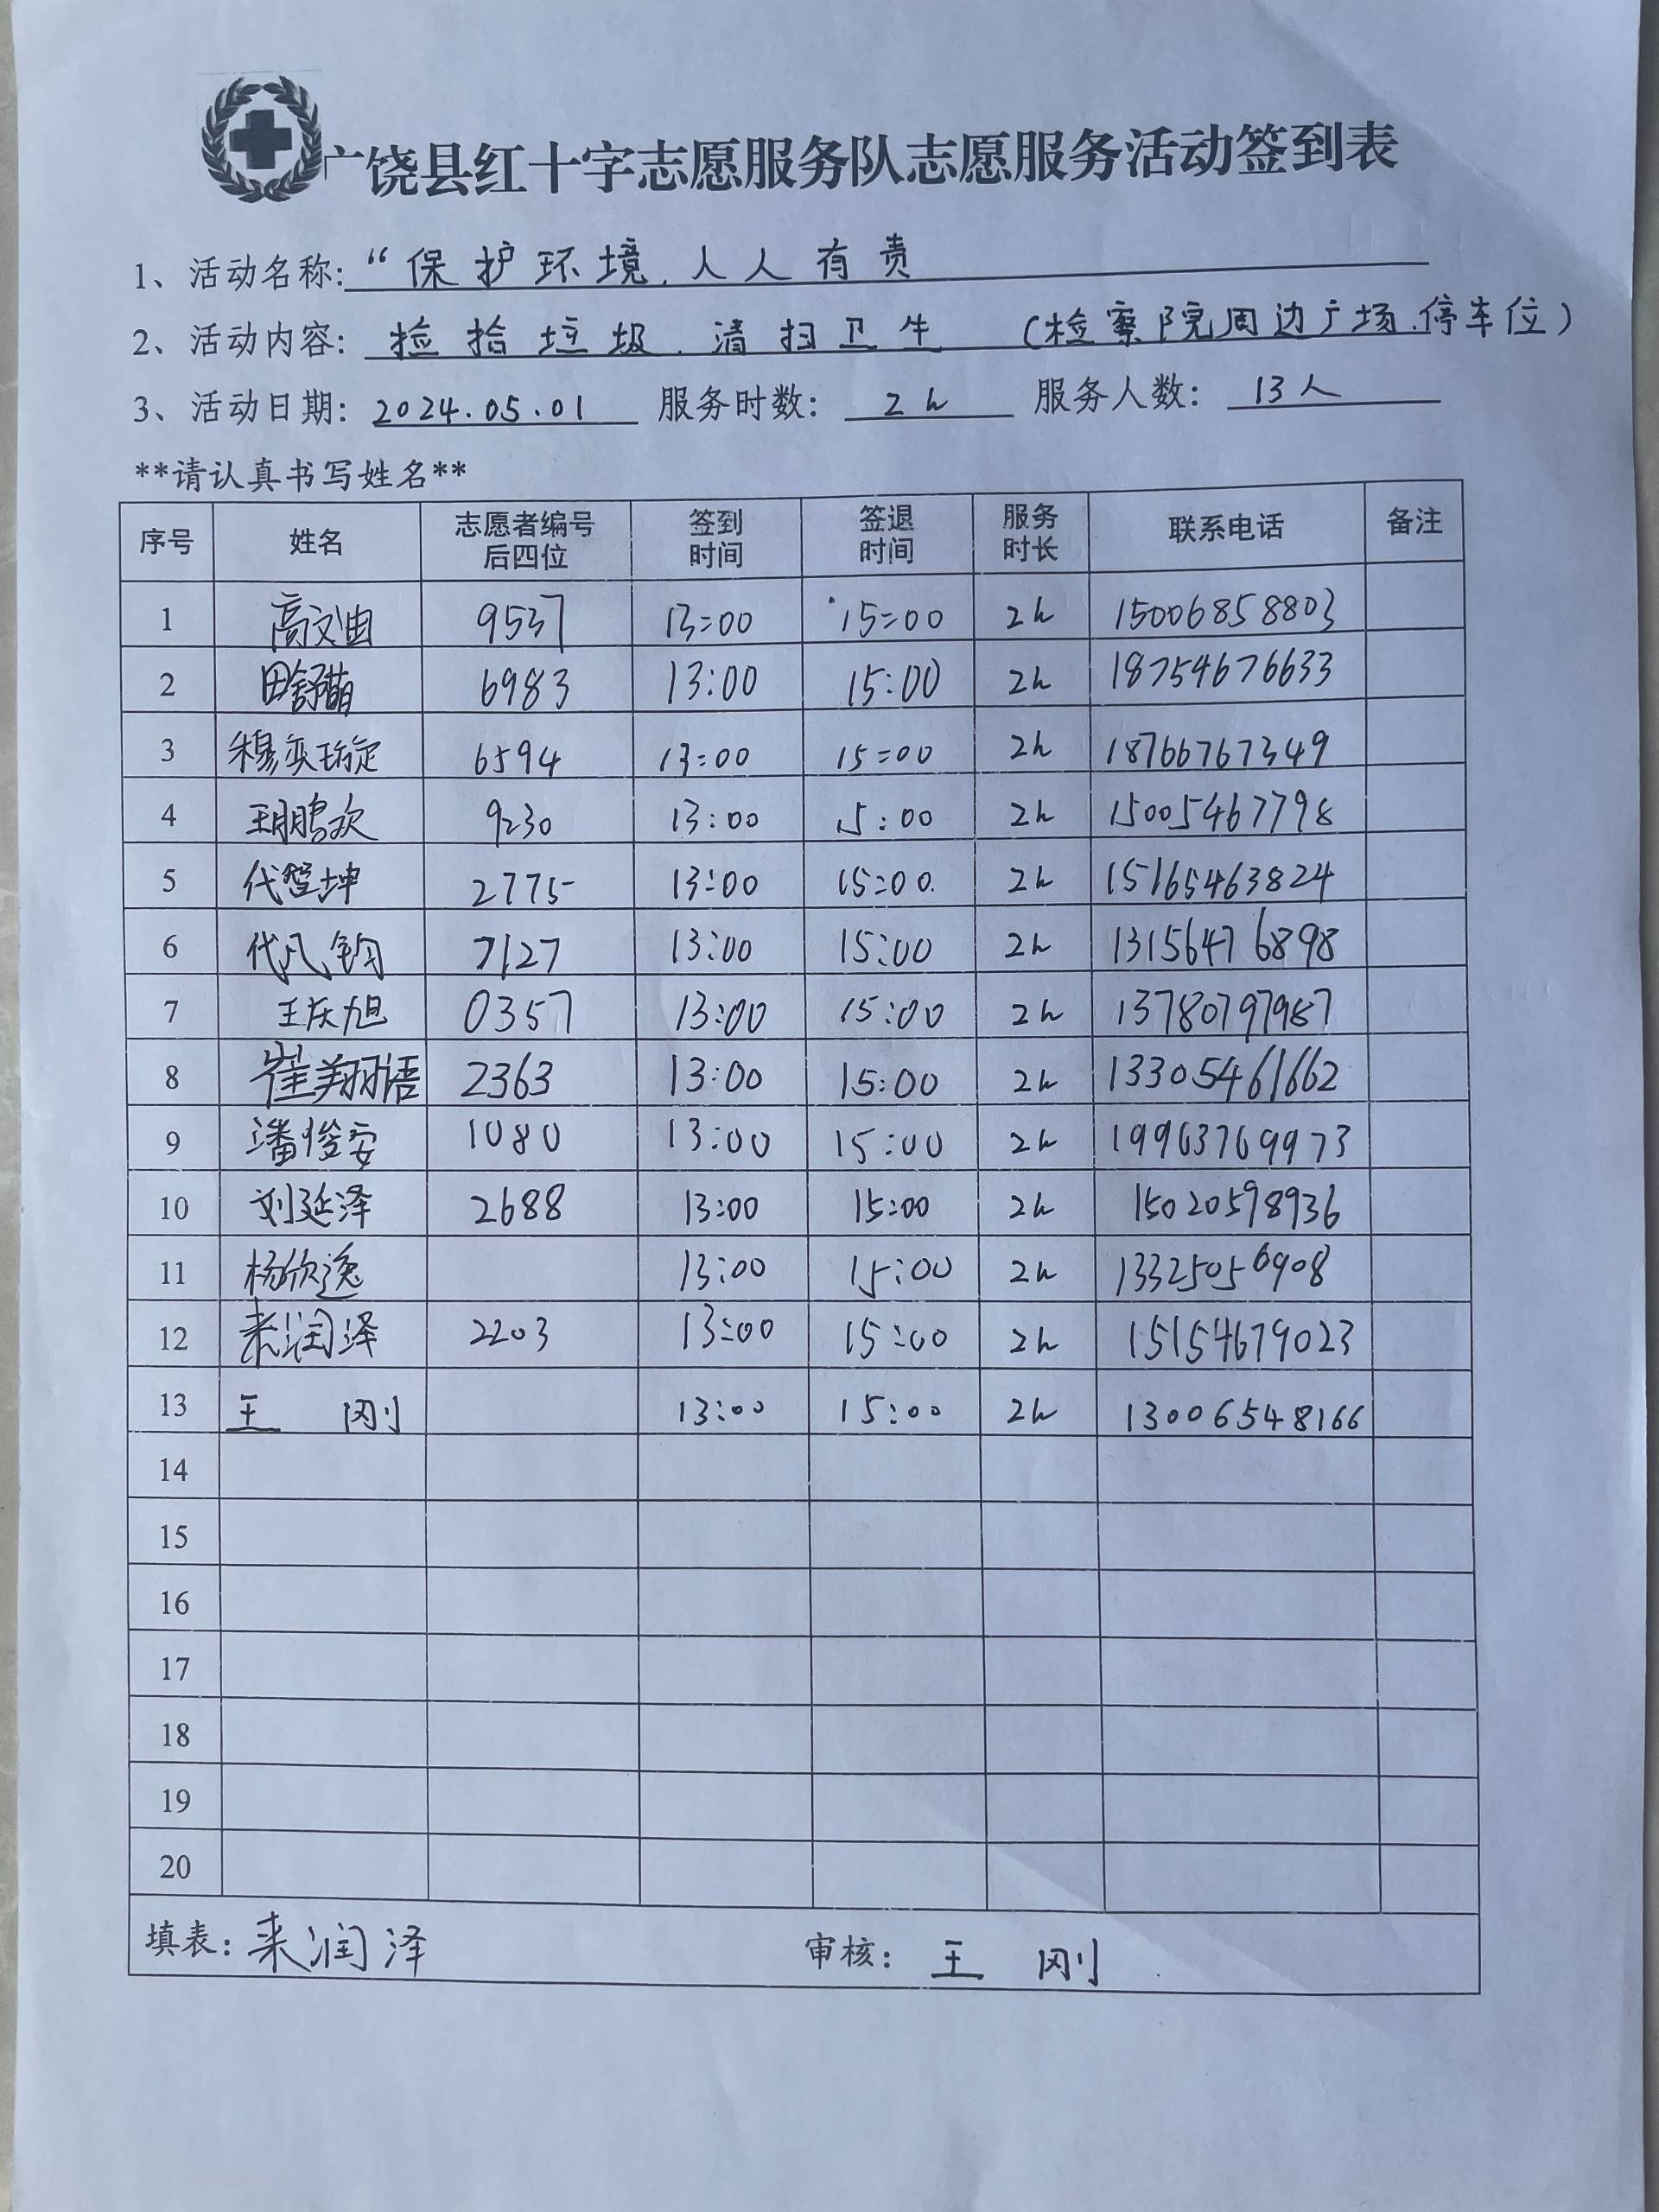 广饶县红十字志愿服务队志愿服务活动签到表
1、活动名称:“保护环境.人人有责
2、活动内容: 捡拾垃圾.清扫卫生 (检察院周边广场.停车位)
3、活动日期: 2024.05.01 服务时数: 2h 服务人数: 13人
**请认真书写姓名**
序号 姓名 志愿者编号后四位 签到时间 签退时间 服务时长 联系电话 备注
1 高文迪 9537 13:00 15:00 2h 15006858803
2 田舒萌 6983 13:00 15:00 2h 18754676633
3 穆奕 6594 13:00 15:00 2h 18766767349
4 王鹏欢 9230 13:00 15:00 2h 15005467798
5 代 坤 2775 13:00 15:00. 2h 15165463824
6 代凡钧 7127 13:00 15:00 2h 13156476898
7 王庆旭 0357 13:00 15:00 2h 13780797987
8 崔翔语 2363 13:00 15:00 2h 13305461662
9 潘俊安 1080 13:00 15:00 2h 19963769973
10 刘延泽 2688 13:00 15:00 2h 15020598936
11 杨欣逸 13:00 15:00 2h 13325056908
12 来润泽 2203 13:00 15:00 2h 15154679023
13 王 刚 13:00 15:00 2h 13006548166
14
15
16
17
18
19
20
填表: 来润泽 审核: 王 刚